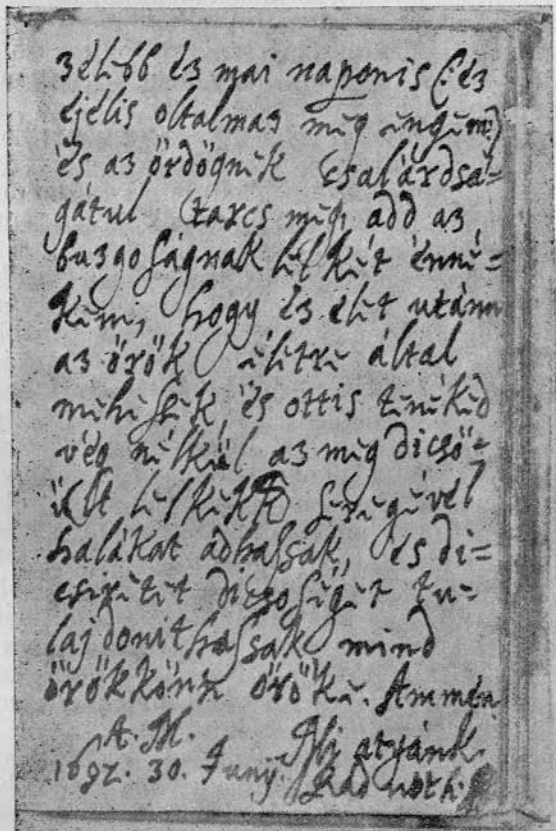 zélibb éz mai naponis (: éz
éjélis oltalmaz még éngém :)
és az ördögnék csalárdsá=
gátul tarcs még, add az
buzgoságnak lélkét énné=
kém, hogy éz élét utánn
az örök élétré által
méhéssék, és ottis ténékéd
vég nélkül az még dicsö=
ült lélkékk sérégével
halákat adhassak, és di=
csirétét dicsoségét tu=
lajdonithassak mind
örökkönn örökké. Ammén
A. M. Mi atyánk.
1692. 30. Junÿ. Radnoth.